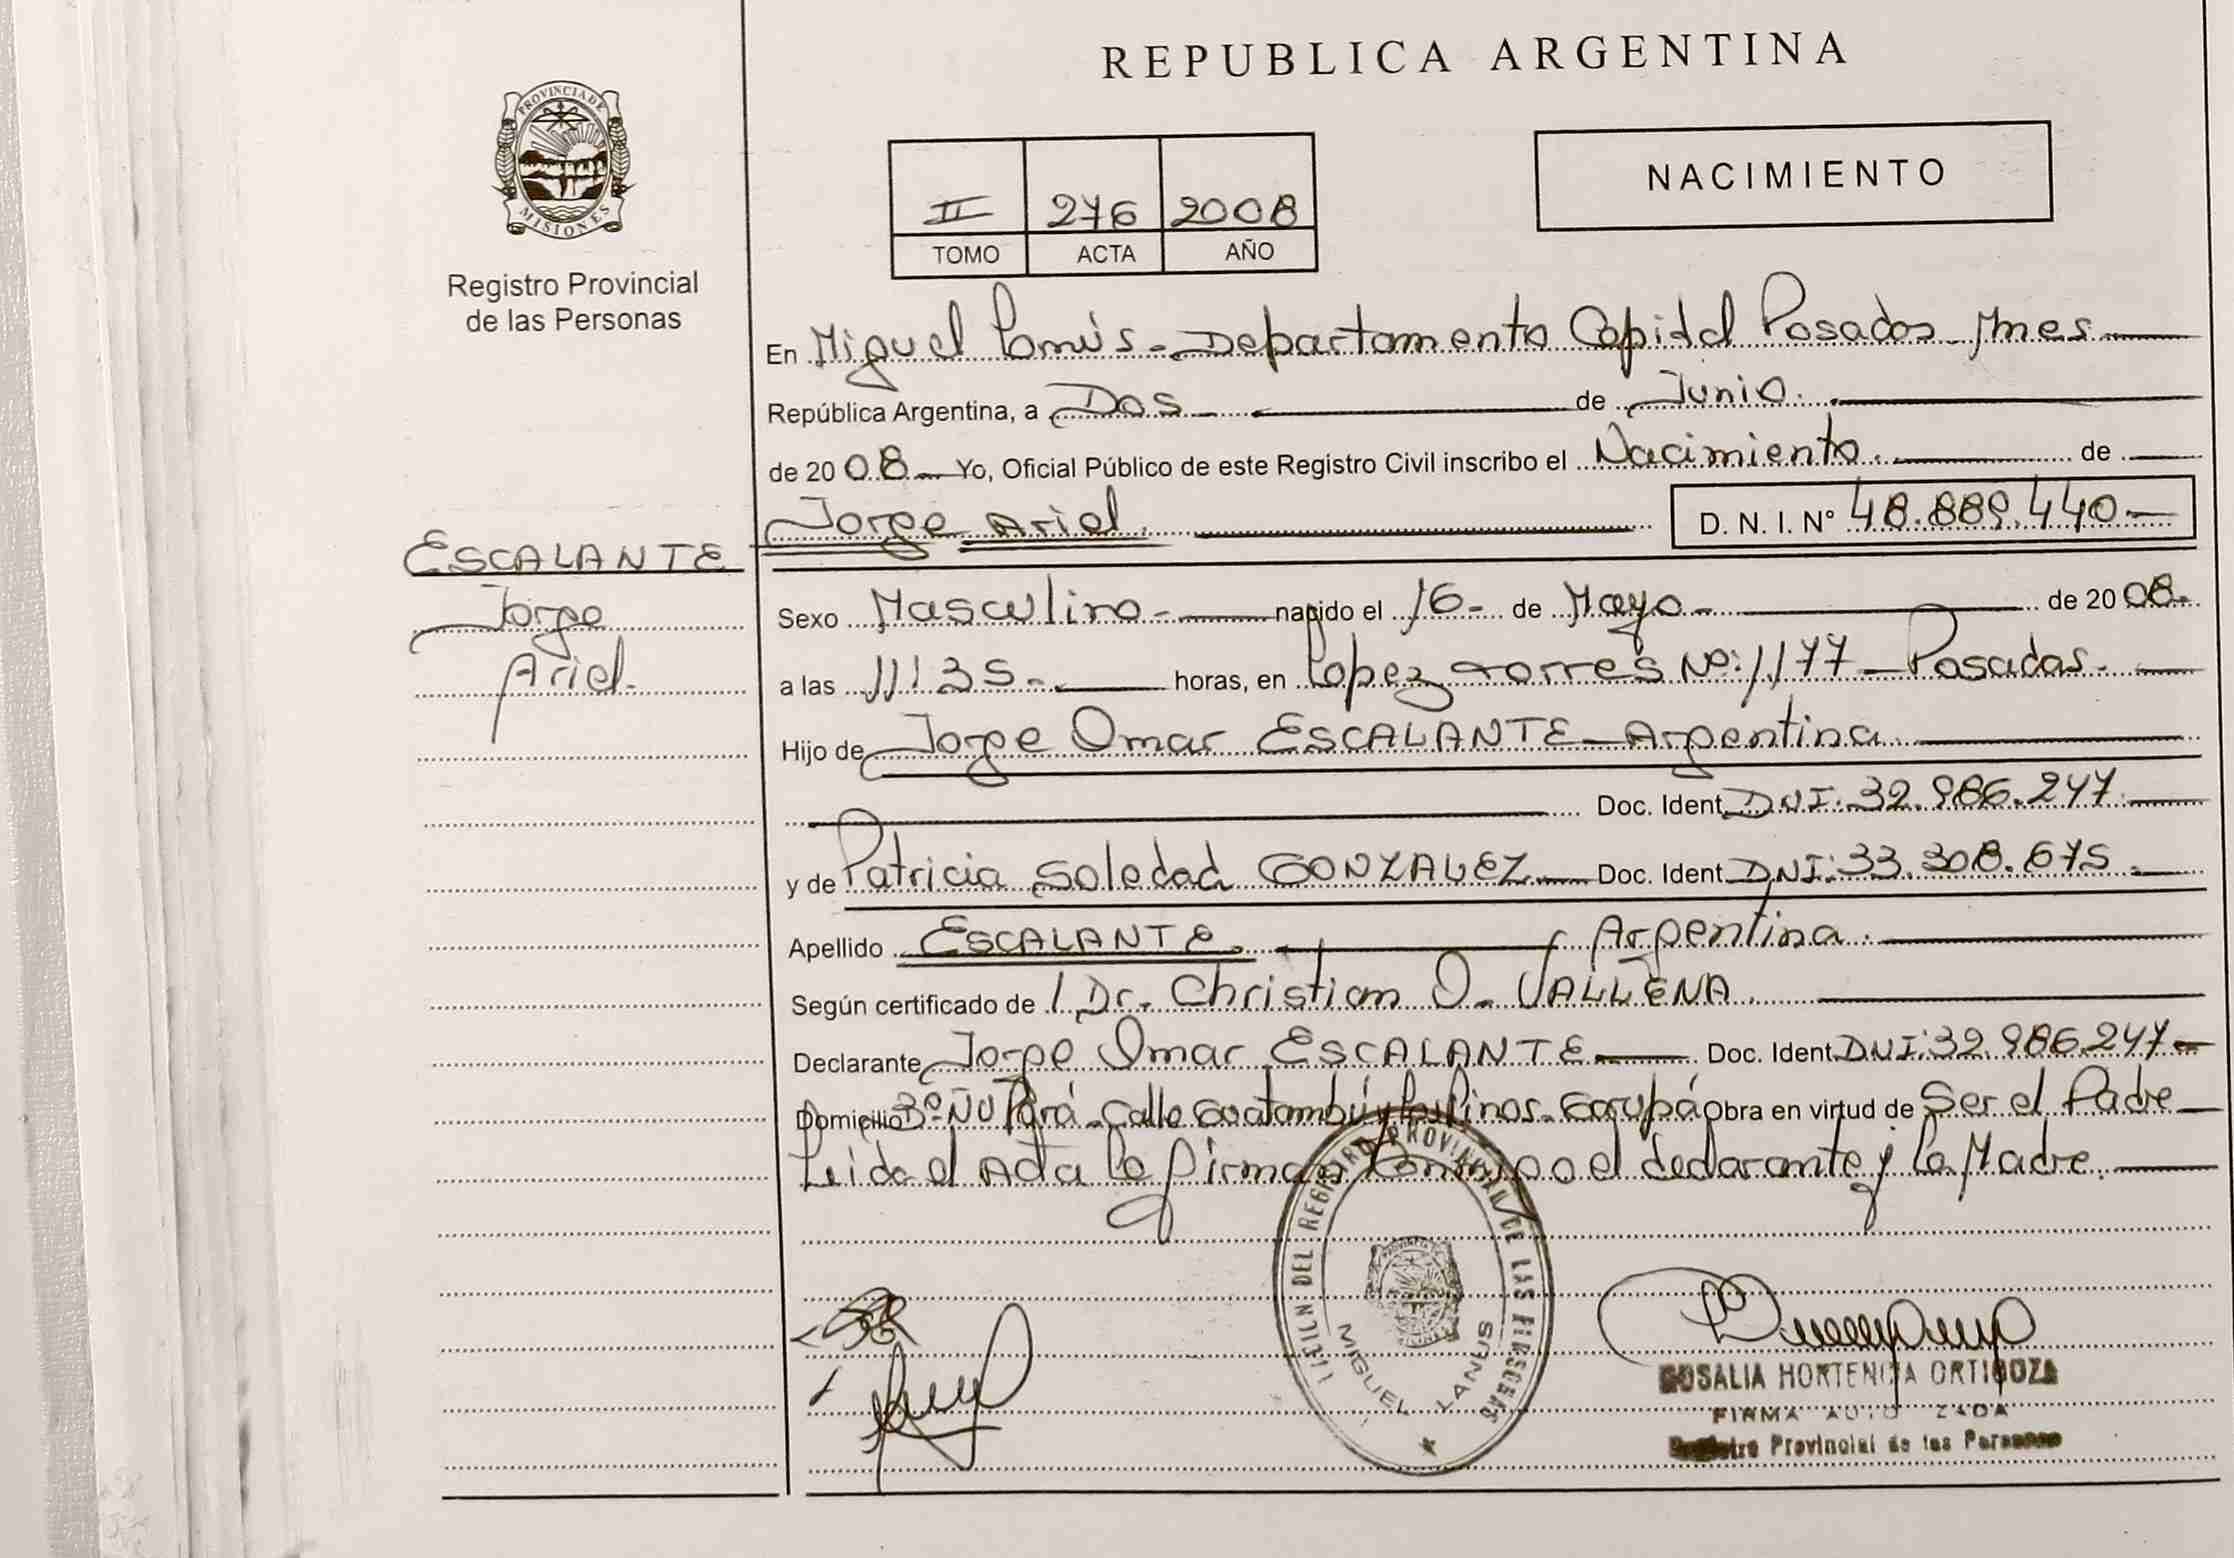 REPUBLICA ARGENTINA
PROVINCIA DE
MISIONES
Registro Provincial
de las Personas
II 276 2008
TOMO ACTA AÑO
NACIMIENTO
En Miguel Lanús - Departamento Capital Posadas - Mnes
República Argentina, a Dos de Junio.
de 2008 Yo, Oficial Público de este Registro Civil inscribo el Nacimiento. de
Jorge Ariel. D. N. I. N° 48.889.440
ESCALANTE
Jorge
Ariel.
Sexo Masculino - nacido el 16 - de Mayo - de 2008.
a las 11:35 - horas, en Lopez torres Nº: 1177 - Posadas.
Hijo de Jorge Omar ESCALANTE - Argentina
Doc. Ident. DNI: 32.986.247
y de Patricia Soledad GONZALEZ Doc. Ident. DNI: 33.308.675.
Apellido ESCALANTE. Argentina.
Según certificado de / Dr. Christian O. VALLENA
Declarante Jorge Omar ESCALANTE Doc. Ident. DNI: 32.986.247
Domicilio Bº Ñu Porá - Calle Guatambú y Los Pinos - Garupá Obra en virtud de Ser el Padre
Leida el Acta la firman Conmigo el declarante y la Madre.
DEL REGISTRO PROVINCIAL DE LAS PERSONAS
MIGUEL LANUS
ROSALIA HORTENCIA ORTIGOZA
FIRMA AUTORIZADA
Registro Provincial de las Personas